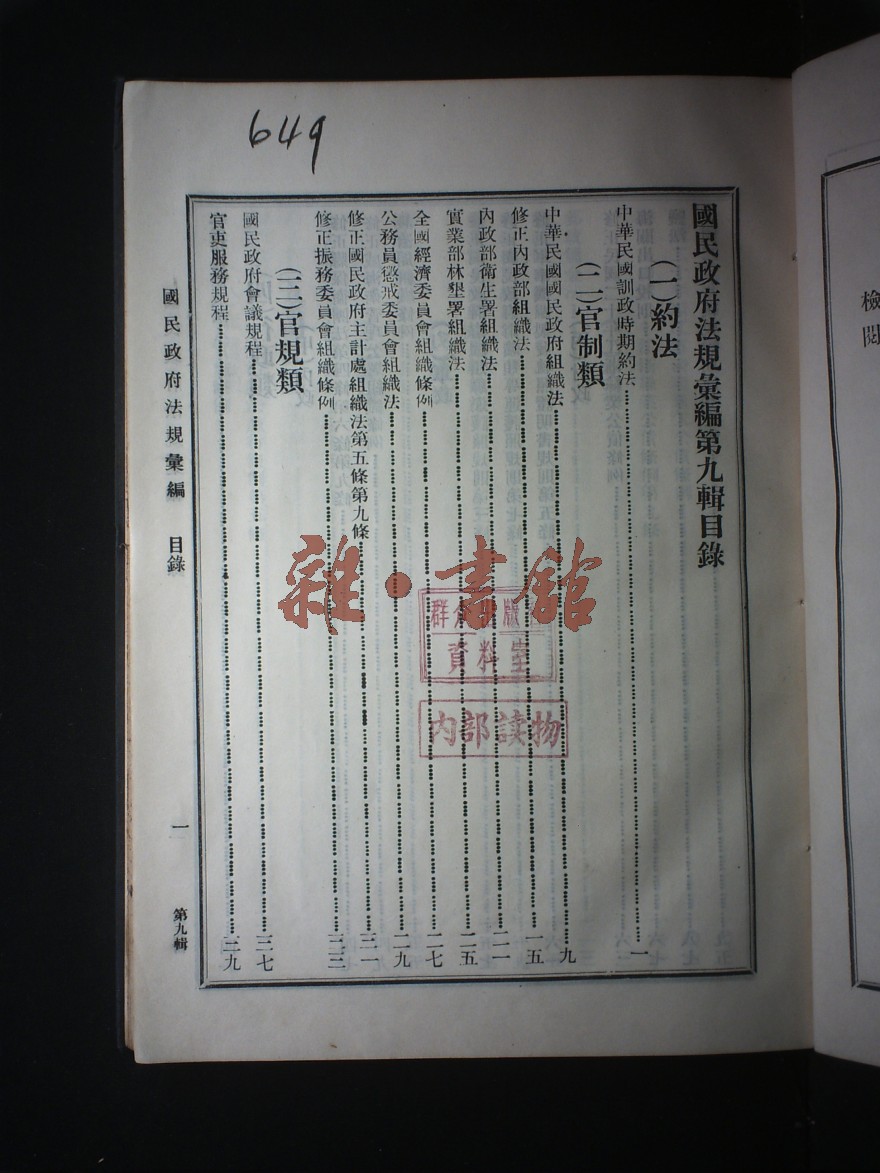 649
國民政府法規彙編第九輯目錄
(一)約法
中華民國訓政時期約法 一
(二)官制類
中華民國國民政府組織法 九
修正內政部組織法 一五
內政部衛生署組織法 二一
實業部林墾署組織法 二五
全國經濟委員會組織條例 二七
公務員懲戒委員會組織法 二九
修正國民政府主計處組織法第五條第九條 三一
修正振務委員會組織條例 三三
(三)官規類
國民政府會議規程 三七
官吏服務規程 三九
國民政府法規彙編 目錄 一 第九輯
雜·書館
資料室
内部读物
檢閱